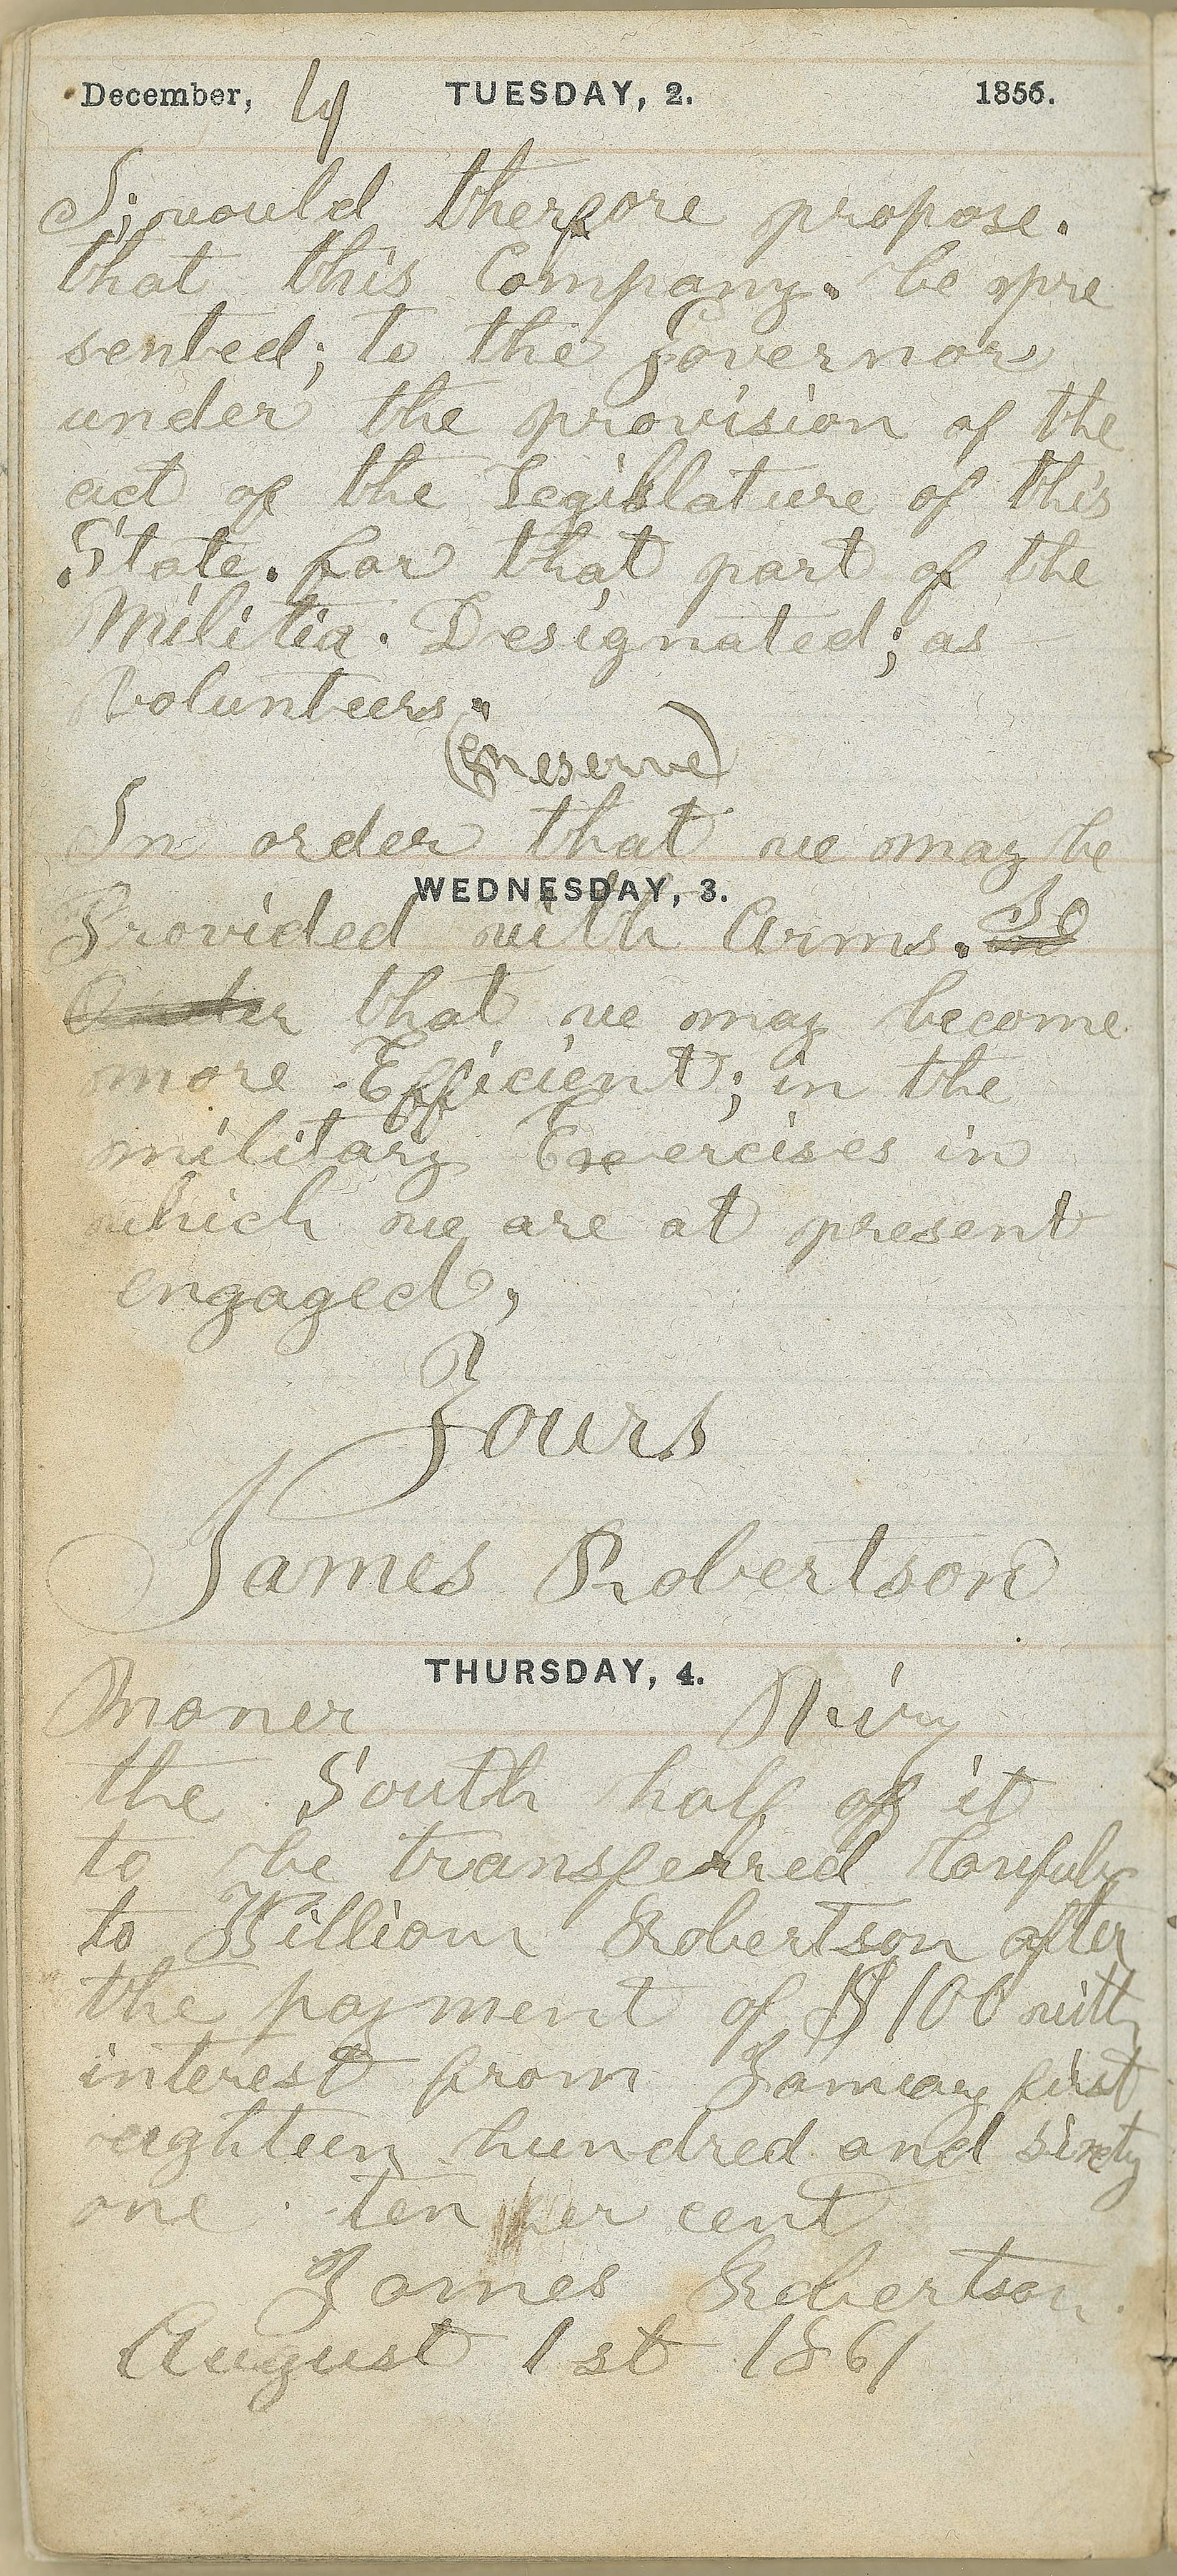 December, 4 TUESDAY, 2. 1856.
I; would therfore propose.
that this Company. be pre
sented; to the Governor
under the provision of the
act of the Legislature of this
State. for that part of the
Militia. Designated; as
Volunteers.
(Reserve)
In order that we may be
WEDNESDAY, 3.
Provided with Arms. So
Order that we may become
more Efficient; in the
military Exercises in
which we are at present
engaged,
Yours
James Robertson
THURSDAY, 4.
Maner
the South half of it
to be transferred Lawfuly
to William Robertson after
the payment of $100 with
interest from January first
eighteen hundred and sixty
one ten per cent
James Robertson.
August 1st 1861